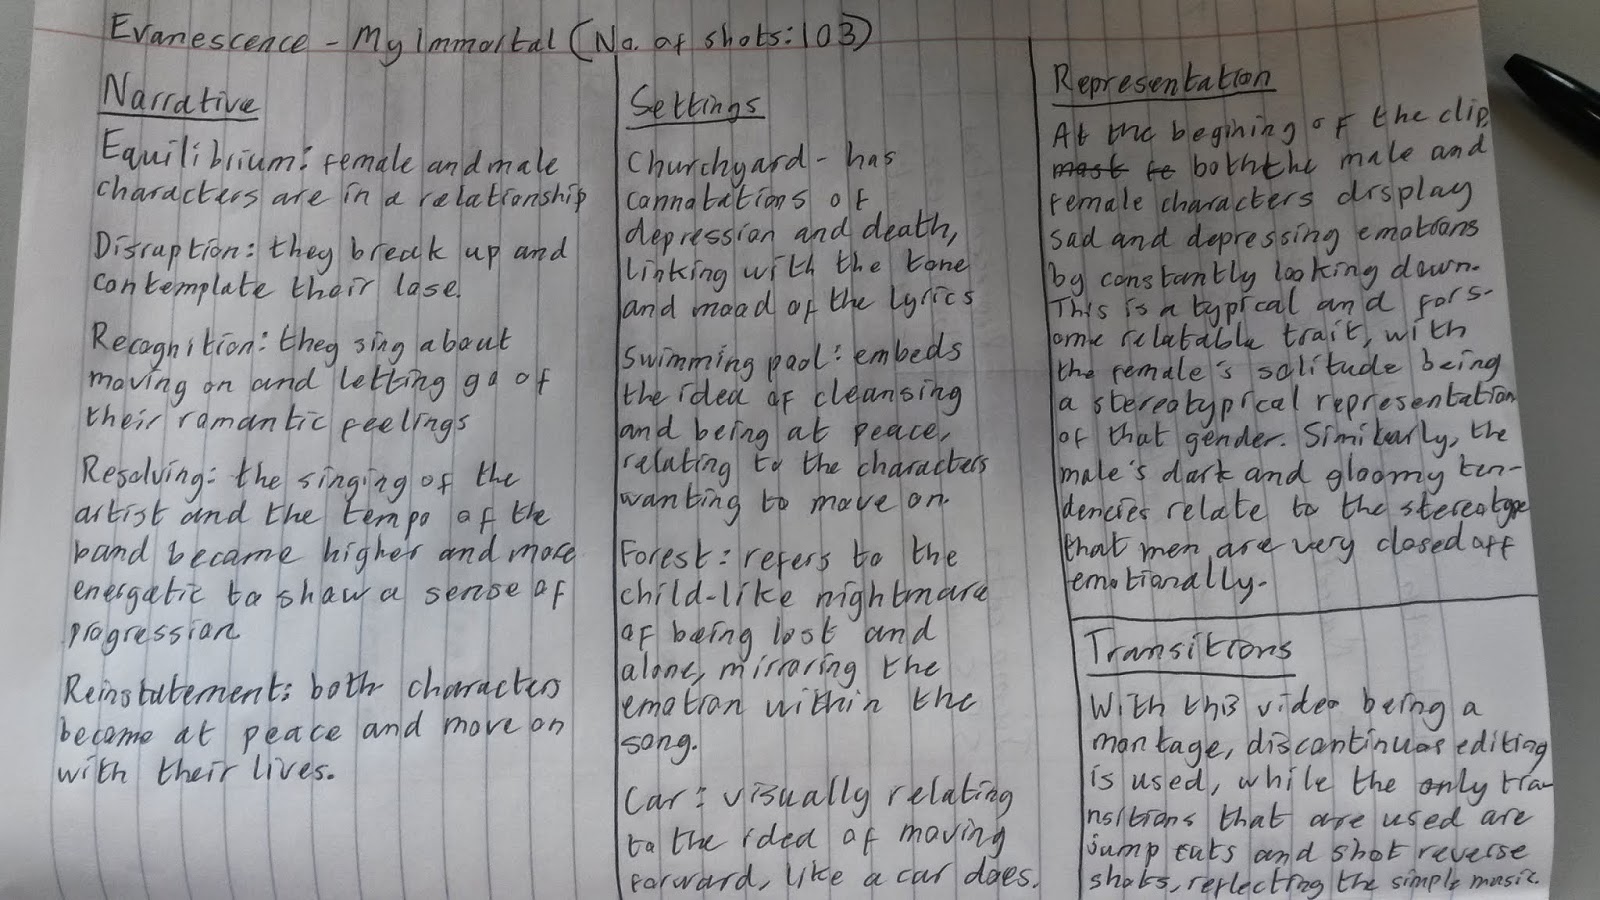 Evanescence - My Immortal (No. of shots: 103)
Narrative
Equilibrium: female and male
characters are in a relationship
Disruption: they break up and
contemplate their lose.
Recognition: they sing about
moving on and letting go of
their romantic feelings
Resolving: the singing of the
artist and the tempo of the
band became higher and more
energetic to show a sense of
progression
Reinstatement: both characters
become at peace and move on
with their lives.
Settings
Churchyard - has
connotations of
depression and death,
linking with the tone
and mood of the lyrics
Swimming pool: embeds
the idea of cleansing
and being at peace,
relating to the characters
wanting to move on.
Forest: refers to the
child-like nightmare
of being lost and
alone, mirroring the
emotion within the
song.
Car: visually relating
to the idea of moving
forward, like a car does.
Representation
At the begining of the clip
most fe both the male and
female characters display
sad and depressing emotions
by constantly looking down.
This is a typical and for s-
ome relatable trait, with
the female's solitude being
a stereotypical representation
of that gender. Similarly, the
male's dark and gloomy ten-
dencies relate to the stereotype
that men are very closed off
emotionally.
Transitions
With this video being a
montage, discontinuos editing
is used, while the only tra-
nsitions that are used are
jump cuts and shot reverse
shots, reflecting the simple music.